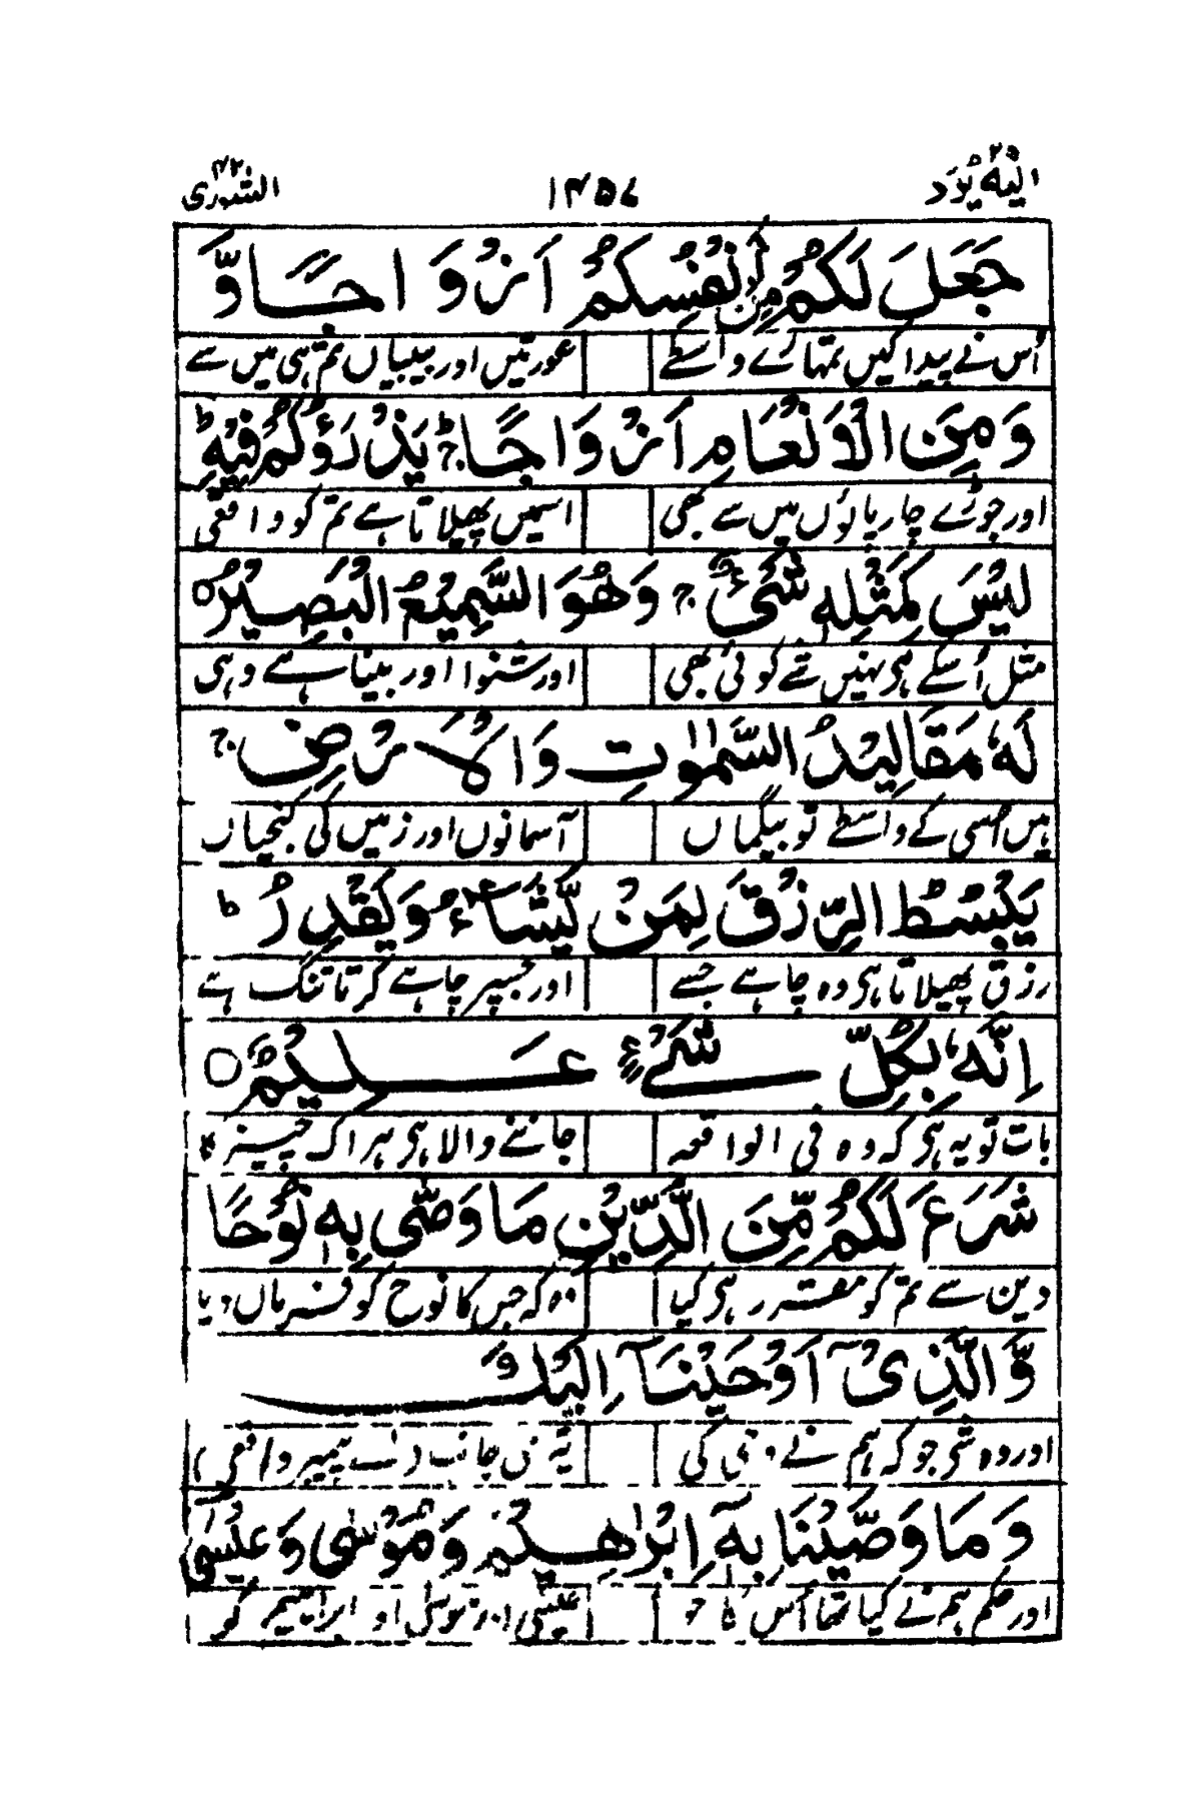 الیه یُرَد ۲۵ ۱۴۵۷ الشوری ۴۲
جَعَلَ لَكُمْ مِّنْ اَنْفُسِكُمْ اَزْوَاجًا وَّ
اُس نے پیدا کیں تمہارے واسطے عورتیں اور بیبیاں تم ہی میں سے
وَمِنَ الْاَنْعَامِ اَزْوَاجًا ۚ يَذْرَؤُكُمْ فِيْهِ ؕ
اور جوڑے چارپاؤں میں سے بھی اسمیں پھیلاتا ہے تم کو واقعی
لَيْسَ كَمِثْلِهٖ شَىْءٌ ۚ وَهُوَ السَّمِيْعُ الْبَصِيْرُ ۝
مثل اُسکے ہی نہیں شے کوئی بھی اور شنوا اور بینا ہے وہی
لَهٗ مَقَالِيْدُ السَّمٰوٰتِ وَالْاَرْضِ ۚ
ہیں اسی کے واسطے تو بیگماں آسمانوں اور زمیں کی کنجیاں
يَبْسُطُ الرِّزْقَ لِمَنْ يَّشَآءُ وَيَقْدِرُ ؕ
رزق پھیلاتا ہی وہ چاہے جسے اور جسپر چاہے کرتا تنگ ہے
اِنَّهٗ بِكُلِّ شَىْءٍ عَلِيْمٌ ۝
بات تو یہ ہی کہ وہ فی الواقعہ جاننے والا ہی ہر اک چیز کا
شَرَعَ لَكُمْ مِّنَ الدِّيْنِ مَا وَصّٰى بِهٖ نُوْحًا
دین سے تم کو مقرر ہی کیا وہ کہ جس کا نوح کو فرماں دیا
وَّالَّذِىْٓ اَوْحَيْنَآ اِلَيْكَ
اور وہ شی جو کہ ہم نے وحی کی جانب پیمبر واقعی
وَمَا وَصَّيْنَا بِهٖٓ اِبْرٰهِيْمَ وَمُوْسٰى وَعِيْسٰٓى
اور حکم ہم نے کیا تھا اُس کا جو عیسیٰ اور موسیٰ او ابراہیم کو